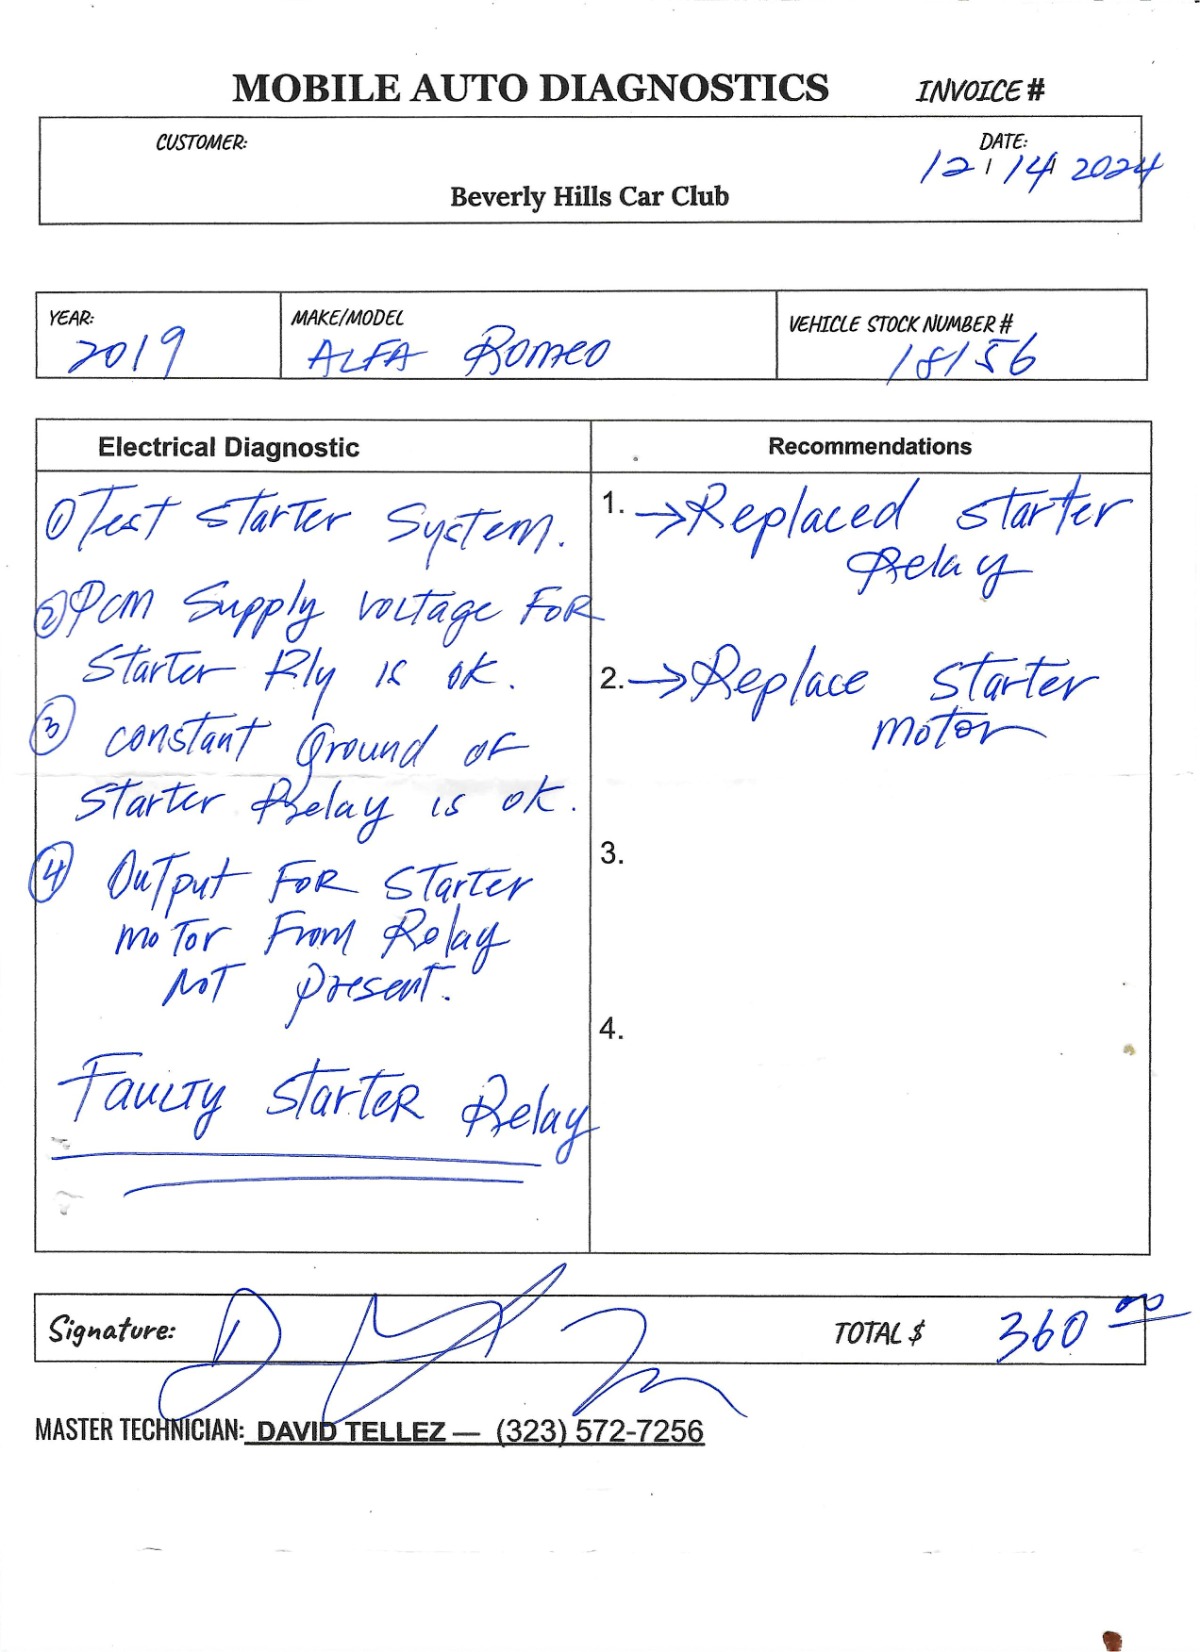 MOBILE AUTO DIAGNOSTICS INVOICE #
CUSTOMER: DATE:
12/14/2024
Beverly Hills Car Club
YEAR: MAKE/MODEL VEHICLE STOCK NUMBER #
2019 ALFA Romeo 18156
Electrical Diagnostic Recommendations
① Test Starter System.
② PCM Supply Voltage FOR
Starter Rly is ok.
③ constant Ground OF
Starter Relay is ok.
④ Output FOR Starter
motor From Relay
Not present.
Faulty Starter Relay
1. → Replaced starter
Relay
2. → Replace starter
motor
3.
4.
Signature: TOTAL $ 360 00
MASTER TECHNICIAN: DAVID TELLEZ — (323) 572-7256